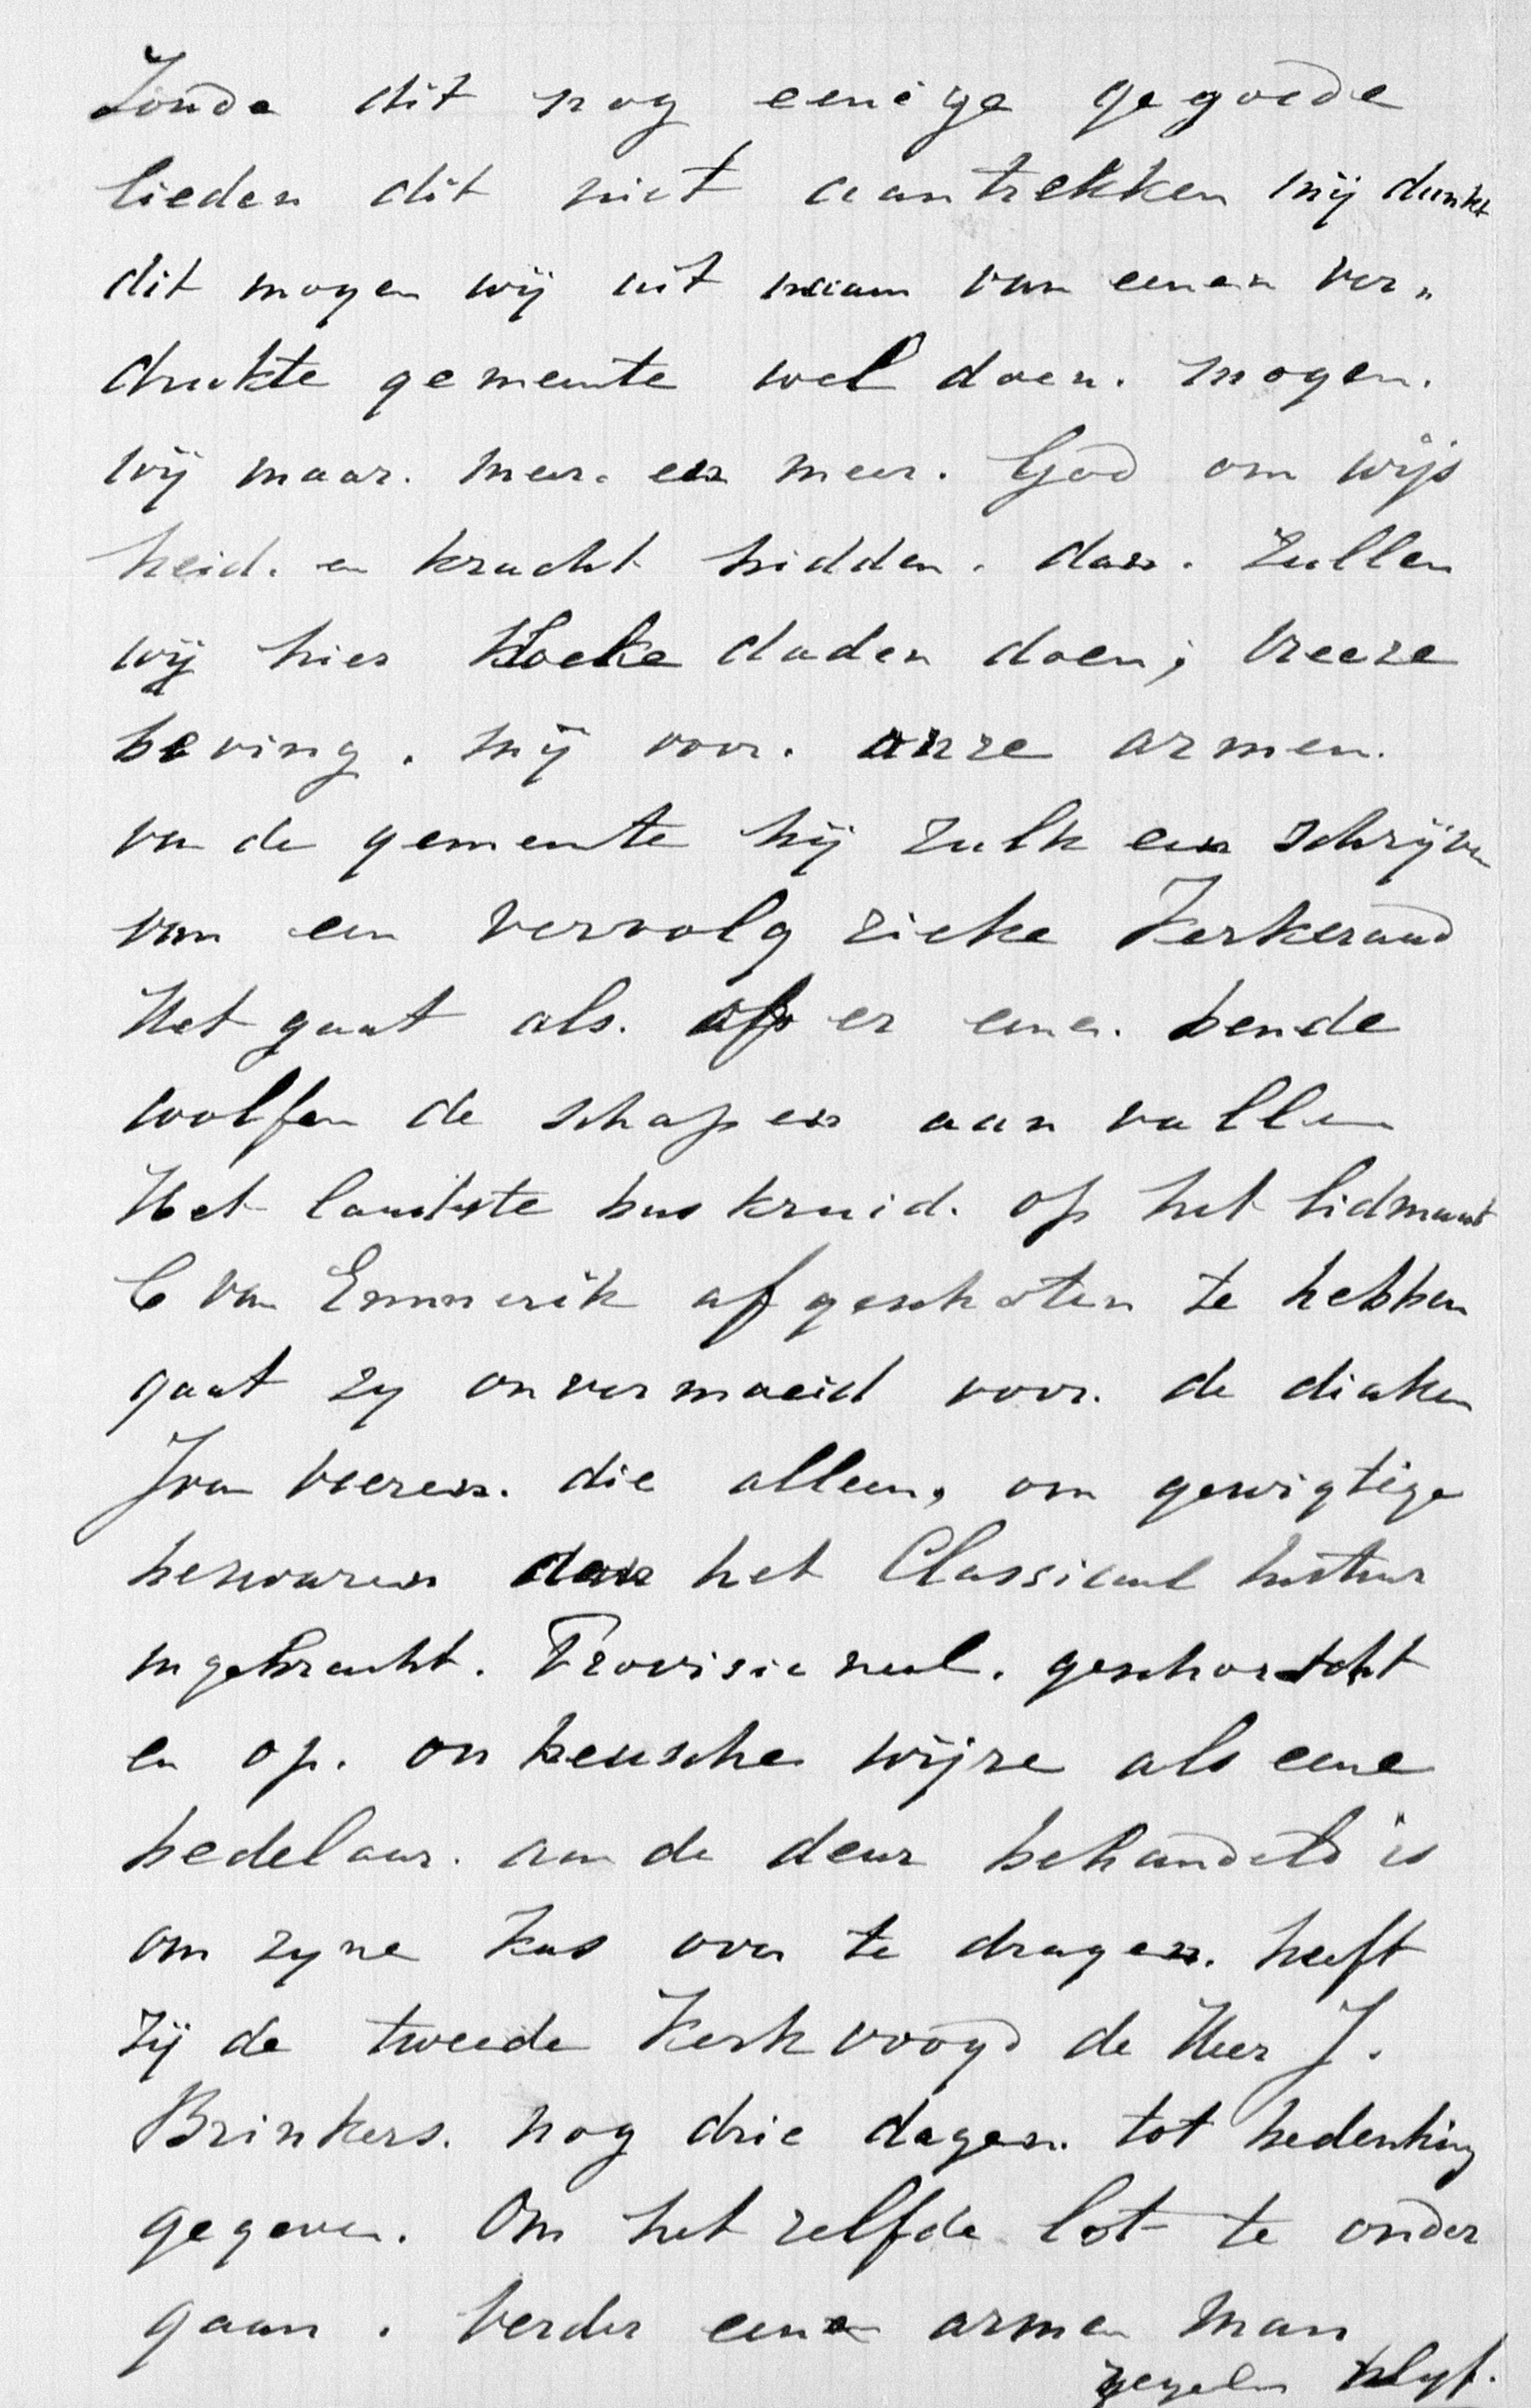 Zoude dit nog eenige gegoede
lieden dit niet aantrekken mij dunkt
dit mogen wij uit naam van eenen ver„
drukte gemeente wel doen. mogen.
wij maar. meer. en meer. God om wijs
heid. en kracht bidden. dan. zullen
wij hier kloeke daden doen; vreeze
beving. mij voor. onze armen.
van de gemeente bij zulk een schrijven
van een vervolg zieke Kerkeraad
Het gaat als. of er eene. bende
wolfen de schapen aan vallen
Het laatste bus kruid. op het lidmaat
C van Emmerik afgeschoten te hebben
gaat zy onvermoeid voor. de diaken
J van Veeren. die alleen, om gewigtige
bezwaren den het Classicaal bestuur
ingebracht. Provisioneel. geschorscht
en op. onkeusche wijze als eene
bedelaar. aan de deur behandeld is
om zyne kas over te dragen. heeft
zij de tweede Kerkvoogd de Heer J.
Brinkers. nog drie dagen. tot bedenking
gegeven. Om het zelfde lot te onder
gaan. Verder eene armen man